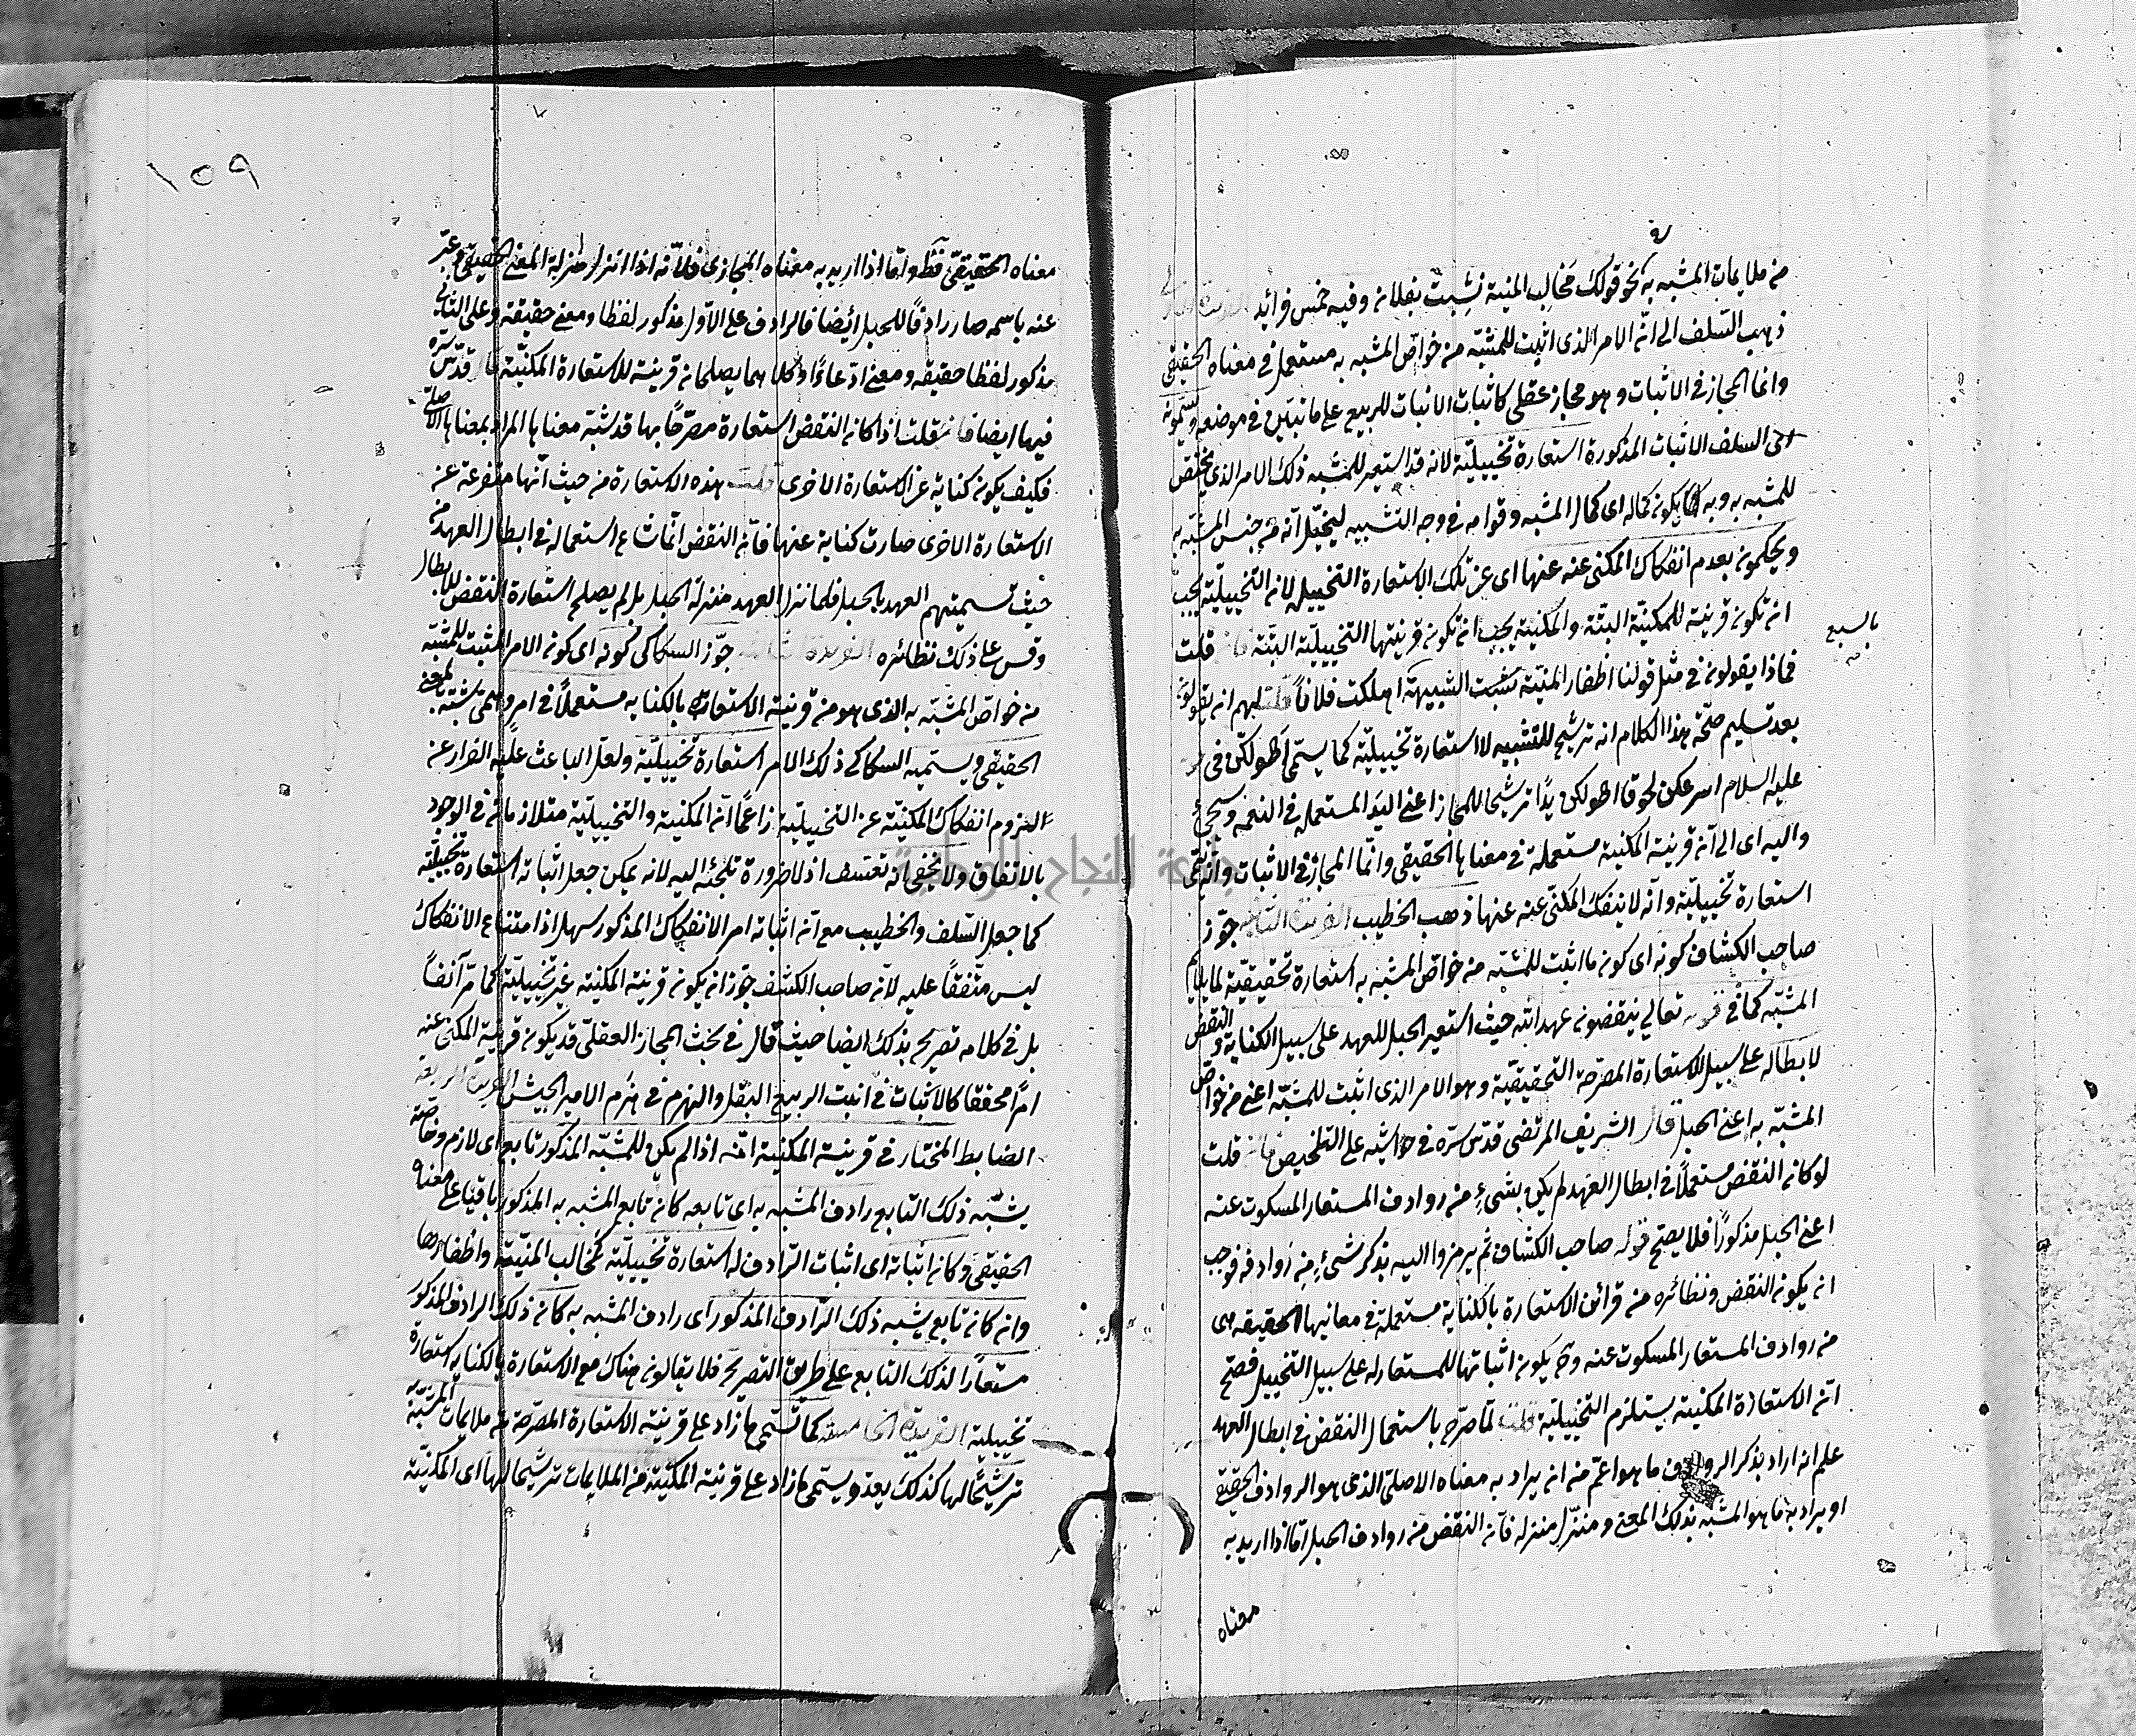 من ملايمات المشبه به نحو قولك مخالب المنية نشبت بفلان وفيه خمس فرائد الفريدة الاولى
ذهب السلف الى ان الامر الذى اثبت للمشبه من خواص المشبه به مستعمل فى معناه الحقيقى
وانما المجاز فى الاثبات وهو مجاز عقلى كاثبات الانبات للربيع على ما تبين فى موضعه ويسمونه
اى السلف الاثبات المذكورة استعارة تخييلية لانه قد استعير للمشبه ذلك الامر الذى يختص
للمشبه به وبه يكون كماله اى كمال المشبه وقوامه فى وجه التشبيه ليخيل انه من جنس المشبه به
ويحكمون بعدم انفكاك المكنى عنه عنها اى عن تلك الاستعارة التخييلية لان التخييلية يجب
ان تكون قرينة للمكنية البتة والمكنية يجب ان تكون قرينتها التخييلية البتة فان قلت
فماذا يقولون فى مثل قولنا اظفار المنية الشبيهة بالسبع اهلكت فلانا قلت لهم ان يقولوا
بعد تسليم صحة هذا الكلام انه ترشيح للتشبيه لا استعارة تخييلية كما يسمى اطولكن فى
عليه السلام اسرعكن لحوقا اطولكن يدا ترشيحا للمجاز اعنى اليد المستعملة فى النعمة وسيجئ
واليه اى الى ان قرينة المكنية مستعملة فى معناها الحقيقى وانما المجاز فى الاثبات وانه يسمى
استعارة تخييلية وانه لا ينفك المكنى عنه عنها ذهب الخطيب الفريدة الثانية جوز
صاحب الكشاف كونه اى كون ما اثبت للمشبه من خواص المشبه به استعارة تحقيقية لما يلايم
المشبه كما فى قوله تعالى ينقضون عهد الله حيث استعير الحبل للعهد على سبيل الكناية والنقض
لابطاله على سبيل الاستعارة المصرحة التحقيقية وهو الامر الذى اثبت للمشبه اعنى من خواص
المشبه به اعنى الحبل قال الشريف المرتضى قدس سره فى حواشيه على التلخيص فان قلت
لو كان النقض مستعملا فى ابطال العهد لم يكن بشئ من روادف المستعار المسكوت عنه
اعنى الحبل مذكورا فلا يصح قوله صاحب الكشاف ثم يرمزوا اليه بذكر شئ من روادفه فوجب
ان يكون النقض ونظائره من قرائن الاستعارة بالكناية مستعملة فى معانيها الحقيقية هى
من روادف المستعار المسكوت عنه وح يكون اثباتها للمستعار له على سبيل التخييل فصح
ان الاستعارة المكنية يستلزم التخييلية قلت لما صرح باستعمال النقض فى ابطال العهد
علم انه اراد بذكر الروادف ما هو اعم من ان يراد به معناه الاصلى الذى هو الروادف الحقيقى
او يراد به ما هو المشبه بذلك المعنى ومنزل منزله فان النقض من روادف الحبل اما اذا اريد به
معناه
١٥٩
معناه الحقيقى فظ واما اذا اريد به معناه المجازى فلانه اذا انزل منزلة المعنى الحقيقى وعبر
عنه باسمه صار رادفا للحبل ايضا فالرادف على الاول مذكور لفظا ومعنى حقيقة وعلى الثانى
مذكور لفظا حقيقة ومعنى ادعاءا وكلاهما يصلحان قرينة للاستعارة المكنية قال قدس سره
فيها ايضا فان قلت اذا كان النقض استعارة مصرحا بها قد شبه معناها المراد بمعناها الاصلى
فكيف يكون كناية عن الاستعارة الاخرى قلت هذه الاستعارة من حيث انها متفرعة عن
الاستعارة الاخرى صارت كناية عنها فان النقض انما شاع استعماله فى ابطال العهد من
حيث تسميتهم العهد بالحبل فلما نزل العهد منزلة الحبل بل لم يصلح استعارة النقض للابطال
وقس على ذلك نظائره الفريدة الثالثة جوز السكاكى كونه اى كون الامر المثبت للمشبه
من خواص المشبه به الذى هو من قرينة الاستعارة بالكناية مستعملا فى امر وهمى شبه بالمعنى
الحقيقى ويسميه السكاكى ذلك الامر استعارة تخييلية ولعل الباعث عليه الفرار عن
لزوم انفكاك المكنية عن التخييلية زاعما ان المكنية والتخييلية متلازمان فى الوجود
بالاتفاق ولا يخفى انه تعسف اذ لا ضرورة تلجئه اليه لانه يمكن جعل اثباته استعارة تخييلية
كما جعل السلف والخطيب مع ان اثباته امر الانفكاك المذكور سهل اذ امتناع الانفكاك
ليس متفقا عليه لان صاحب الكشف جوز ان يكون قرينة المكنية غير تخييلية كما مر آنفا
بل فى كلامه تصريح بذلك ايضا حيث قال فى بحث المجاز العقلى قد يكون قرينة المكنى عنه
امرا محققا كالانبات فى انبت الربيع البقل والهزم فى هزم الامير الجيش الفريدة الرابعة
الضابط المختار فى قرينة المكنية انه اذا لم يكن للمشبه المذكور تابع اى لازم وخاصة
يشبه ذلك التابع رادف المشبه به اى تابعه كان تابع المشبه به المذكور باقيا على معناه
الحقيقى وكان اثباته اى اثبات الرادف له استعارة تخييلية كمخالب المنية واظفارها
وان كان تابع يشبه ذلك الرادف المذكور اى رادف المشبه به كان ذلك الرادف المذكور
مستعارا لذلك التابع على طريق التصريح فلا يقالون هناك مع الاستعارة بالكناية استعارة
تخييلية الفريدة الخامسة كما تسمى ما زاد على قرينة الاستعارة المصرحة من ملايمات المشبه به
ترشيحا لها كذلك يعد ويسمى ما زاد على قرينة المكنية من الملايمات ترشيحا لها اى المكنية
جامعة النجاح الوطنية